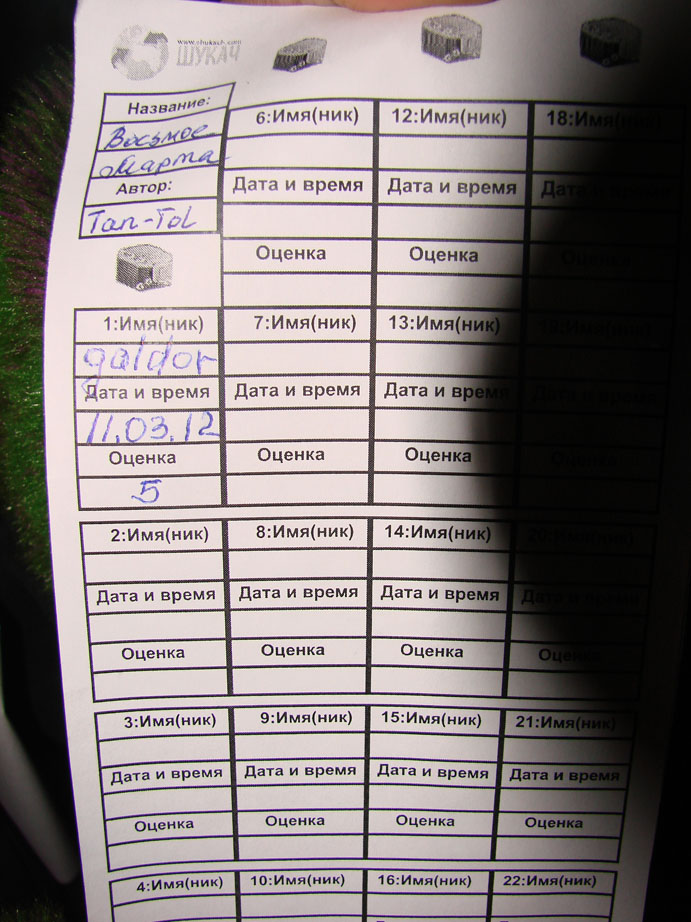 www.shukach.com
ШУКАЧ
Название:
Восьмое
Марта
Автор:
Tan-Tol
1:Имя(ник)
galdor
Дата и время
11.03.12
Оценка
5
2:Имя(ник)
Дата и время
Оценка
3:Имя(ник)
Дата и время
Оценка
4:Имя(ник)
6:Имя(ник)
Дата и время
Оценка
7:Имя(ник)
Дата и время
Оценка
8:Имя(ник)
Дата и время
Оценка
9:Имя(ник)
Дата и время
Оценка
10:Имя(ник)
12:Имя(ник)
Дата и время
Оценка
13:Имя(ник)
Дата и время
Оценка
14:Имя(ник)
Дата и время
Оценка
15:Имя(ник)
Дата и время
Оценка
16:Имя(ник)
18:Имя(ник)
Дата и время
Оценка
19:Имя(ник)
Дата и время
Оценка
20:Имя(ник)
Дата и время
Оценка
21:Имя(ник)
Дата и время
Оценка
22:Имя(ник)